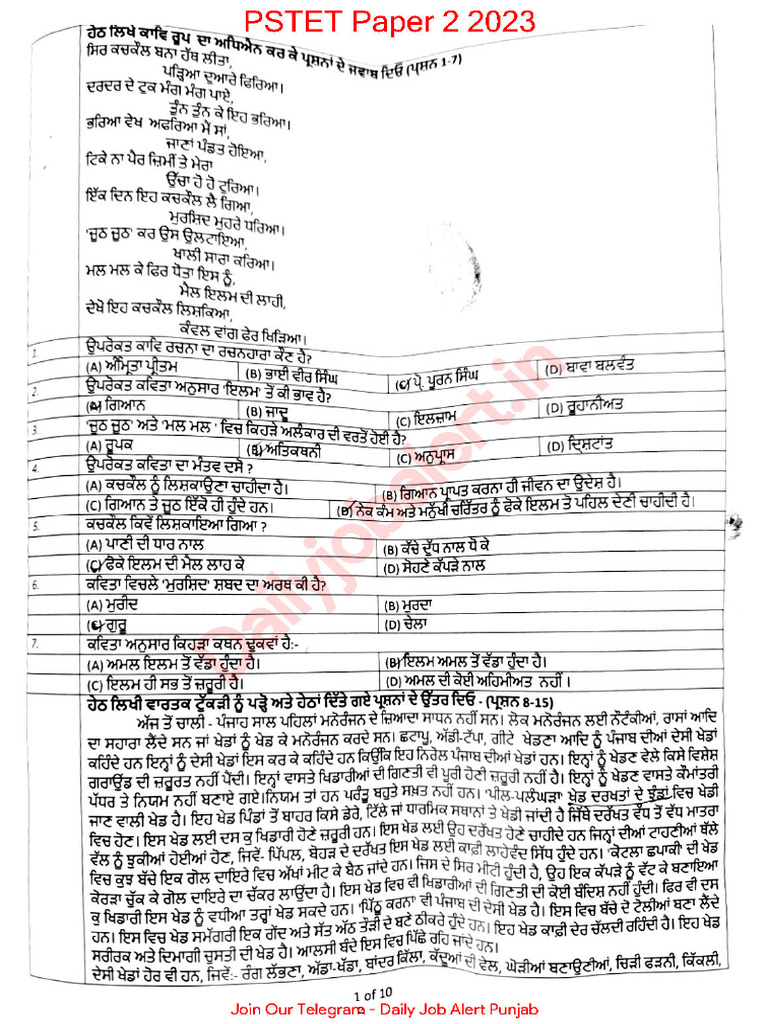 PSTET Paper 2 2023
ਹੇਠ ਲਿਖੇ ਕਾਵਿ ਰੂਪ ਦਾ ਅਧਿਐਨ ਕਰ ਕੇ ਪ੍ਰਸ਼ਨਾਂ ਦੇ ਜਵਾਬ ਦਿਓ (ਪ੍ਰਸ਼ਨ 1-7)
ਸਿਰ ਕਚਕੌਲ ਬਨਾ ਹੱਥ ਲੀਤਾ,
ਪੜ੍ਹਿਆ ਦੁਆਰੇ ਫਿਰਿਆ।
ਦਰਦਰ ਦੇ ਟੁਕ ਮੰਗ ਮੰਗ ਪਾਏ,
ਤੁੰਨ ਤੁੰਨ ਕੇ ਇਹ ਭਰਿਆ।
ਭਰਿਆ ਵੇਖ ਅਫਰਿਆ ਮੈਂ ਸਾਂ,
ਜਾਣਾਂ ਪੰਡਤ ਹੋਇਆ,
ਟਿਕੇ ਨਾ ਪੈਰ ਜ਼ਿਮੀਂ ਤੇ ਮੇਰਾ
ਉੱਚਾ ਹੋ ਹੋ ਟੁਰਿਆ।
ਇੱਕ ਦਿਨ ਇਹ ਕਚਕੌਲ ਲੈ ਗਿਆ,
ਮੁਰਸ਼ਿਦ ਮੁਹਰੇ ਧਰਿਆ।
'ਜੂਠ ਜੂਠ' ਕਰ ਉਸ ਉਲਟਾਇਆ,
ਖਾਲੀ ਸਾਰਾ ਕਰਿਆ।
ਮਲ ਮਲ ਕੇ ਫਿਰ ਧੋਤਾ ਇਸ ਨੂੰ,
ਮੈਲ ਇਲਮ ਦੀ ਲਾਹੀ,
ਦੇਖੋ ਇਹ ਕਚਕੌਲ ਲਿਸ਼ਕਿਆ,
ਕੰਵਲ ਵਾਂਗ ਫੇਰ ਖਿੜਿਆ।
1. ਉਪਰੋਕਤ ਕਾਵਿ ਰਚਨਾ ਦਾ ਰਚਨਹਾਰਾ ਕੌਣ ਹੈ?
(A) ਅੰਮ੍ਰਿਤਾ ਪ੍ਰੀਤਮ (B) ਭਾਈ ਵੀਰ ਸਿੰਘ (C) ਪ੍ਰੋ. ਪੂਰਨ ਸਿੰਘ (D) ਬਾਵਾ ਬਲਵੰਤ
2. ਉਪਰੋਕਤ ਕਵਿਤਾ ਅਨੁਸਾਰ 'ਇਲਮ' ਤੋਂ ਕੀ ਭਾਵ ਹੈ?
(A) ਗਿਆਨ (B) ਜਾਦੂ (C) ਇਲਜ਼ਾਮ (D) ਰੂਹਾਨੀਅਤ
3. 'ਜੂਠ ਜੂਠ' ਅਤੇ 'ਮਲ ਮਲ ' ਵਿਚ ਕਿਹੜੇ ਅਲੰਕਾਰ ਦੀ ਵਰਤੋਂ ਹੋਈ ਹੈ?
(A) ਰੂਪਕ (B) ਅਤਿਕਥਨੀ (C) ਅਨੁਪ੍ਰਾਸ (D) ਦ੍ਰਿਸ਼ਟਾਂਤ
4. ਉਪਰੋਕਤ ਕਵਿਤਾ ਦਾ ਮੰਤਵ ਦਸੋ ?
(A) ਕਚਕੌਲ ਨੂੰ ਲਿਸ਼ਕਾਉਣਾ ਚਾਹੀਦਾ ਹੈ। (B) ਗਿਆਨ ਪ੍ਰਾਪਤ ਕਰਨਾ ਹੀ ਜੀਵਨ ਦਾ ਉਦੇਸ਼ ਹੈ।
(C) ਗਿਆਨ ਤੇ ਜੂਠ ਇੱਕੋ ਹੀ ਹੁੰਦੇ ਹਨ। (D) ਨੇਕ ਕੰਮ ਅਤੇ ਮਨੁੱਖੀ ਚਰਿੱਤਰ ਨੂੰ ਫੋਕੇ ਇਲਮ ਤੋ ਪਹਿਲ ਦੇਣੀ ਚਾਹੀਦੀ ਹੈ।
5. ਕਚਕੌਲ ਕਿਵੇਂ ਲਿਸ਼ਕਾਇਆ ਗਿਆ ?
(A) ਪਾਣੀ ਦੀ ਧਾਰ ਨਾਲ (B) ਕੱਚੇ ਦੁੱਧ ਨਾਲ ਧੋ ਕੇ
(C) ਫੋਕੇ ਇਲਮ ਦੀ ਮੈਲ ਲਾਹ ਕੇ (D) ਸੋਹਣੇ ਕੱਪੜੇ ਨਾਲ
6. ਕਵਿਤਾ ਵਿਚਲੇ 'ਮੁਰਸ਼ਿਦ' ਸ਼ਬਦ ਦਾ ਅਰਥ ਕੀ ਹੈ?
(A) ਮੁਰੀਦ (B) ਮੁਰਦਾ
(C) ਗੁਰੂ (D) ਚੇਲਾ
7. ਕਵਿਤਾ ਅਨੁਸਾਰ ਕਿਹੜਾ ਕਥਨ ਢੁਕਵਾਂ ਹੈ:-
(A) ਅਮਲ ਇਲਮ ਤੋਂ ਵੱਡਾ ਹੁੰਦਾ ਹੈ। (B) ਇਲਮ ਅਮਲ ਤੋਂ ਵੱਡਾ ਹੁੰਦਾ ਹੈ।
(C) ਇਲਮ ਹੀ ਸਭ ਤੋਂ ਜ਼ਰੂਰੀ ਹੈ। (D) ਅਮਲ ਦੀ ਕੋਈ ਅਹਿਮੀਅਤ ਨਹੀਂ ।
ਹੇਠ ਲਿਖੀ ਵਾਰਤਕ ਟੁੱਕੜੀ ਨੂੰ ਪੜ੍ਹੋ ਅਤੇ ਹੇਠਾਂ ਦਿੱਤੇ ਗਏ ਪ੍ਰਸ਼ਨਾਂ ਦੇ ਉੱਤਰ ਦਿਓ - (ਪ੍ਰਸ਼ਨ 8-15)
ਅੱਜ ਤੋਂ ਚਾਲੀ - ਪੰਜਾਹ ਸਾਲ ਪਹਿਲਾਂ ਮਨੋਰੰਜਨ ਦੇ ਜ਼ਿਆਦਾ ਸਾਧਨ ਨਹੀਂ ਸਨ। ਲੋਕ ਮਨੋਰੰਜਨ ਲਈ ਨੌਟੰਕੀਆਂ, ਰਾਸਾਂ ਆਦਿ
ਦਾ ਸਹਾਰਾ ਲੈਂਦੇ ਸਨ ਜਾਂ ਖੇਡਾਂ ਨੂੰ ਖੇਡ ਕੇ ਮਨੋਰੰਜਨ ਕਰਦੇ ਸਨ। ਛਟਾਪੂ, ਅੱਡੀ-ਟੱਪਾ, ਗੀਟੇ ਖੇਡਣਾ ਆਦਿ ਨੂੰ ਪੰਜਾਬ ਦੀਆਂ ਦੇਸੀ ਖੇਡਾਂ
ਕਹਿੰਦੇ ਹਨ ਇਨ੍ਹਾਂ ਨੂੰ ਦੇਸੀ ਖੇਡਾਂ ਇਸ ਕਰ ਕੇ ਕਹਿੰਦੇ ਹਨ ਕਿਉਂਕਿ ਇਹ ਨਿਰੋਲ ਪੰਜਾਬ ਦੀਆਂ ਖੇਡਾਂ ਹਨ। ਇਨ੍ਹਾਂ ਨੂੰ ਖੇਡਣ ਵੇਲੇ ਕਿਸੇ ਵਿਸ਼ੇਸ਼
ਗਰਾਊਂਡ ਦੀ ਜ਼ਰੂਰਤ ਨਹੀਂ ਪੈਂਦੀ। ਇਨ੍ਹਾਂ ਵਾਸਤੇ ਖਿਡਾਰੀਆਂ ਦੀ ਗਿਣਤੀ ਵੀ ਪੂਰੀ ਹੋਣੀ ਜ਼ਰੂਰੀ ਨਹੀਂ ਹੈ। ਇਨ੍ਹਾਂ ਨੂੰ ਖੇਡਣ ਵਾਸਤੇ ਕੌਮਾਂਤਰੀ
ਪੱਧਰ ਤੇ ਨਿਯਮ ਨਹੀਂ ਬਣਾਏ ਗਏ।ਨਿਯਮ ਤਾਂ ਹਨ ਪਰੰਤੂ ਬਹੁਤੇ ਸਖ਼ਤ ਨਹੀਂ ਹਨ। 'ਪੀਲ-ਪਲੰਘੜਾ' ਖੇਡ ਦਰਖਤਾਂ ਦੇ ਝੁੰਡਾਂ ਵਿਚ ਖੇਡੀ
ਜਾਣ ਵਾਲੀ ਖੇਡ ਹੈ। ਇਹ ਖੇਡ ਪਿੰਡਾਂ ਤੋਂ ਬਾਹਰ ਕਿਸੇ ਡੇਰੇ, ਟਿੱਲੇ ਜਾਂ ਧਾਰਮਿਕ ਸਥਾਨਾਂ ਤੇ ਖੇਡੀ ਜਾਂਦੀ ਹੈ ਜਿੱਥੇ ਦਰਖਤ ਵੱਧ ਤੋਂ ਵੱਧ ਮਾਤਰਾ
ਵਿਚ ਹੋਣ। ਇਸ ਖੇਡ ਲਈ ਦਸ ਕੁ ਖਿਡਾਰੀ ਹੋਣੇ ਜ਼ਰੂਰੀ ਹਨ। ਇਸ ਖੇਡ ਲਈ ਉਹ ਦਰੱਖਤ ਹੋਣੇ ਚਾਹੀਦੇ ਹਨ ਜਿਨ੍ਹਾਂ ਦੀਆਂ ਟਾਹਣੀਆਂ ਥੱਲੇ
ਵੱਲ ਨੂੰ ਝੁਕੀਆਂ ਹੋਈਆਂ ਹੋਣ, ਜਿਵੇਂ- ਪਿੱਪਲ, ਬੋਹੜ ਦੇ ਦਰਖਤ ਇਸ ਖੇਡ ਲਈ ਕਾਫ਼ੀ ਲਾਹੇਵੰਦ ਸਿੱਧ ਹੁੰਦੇ ਹਨ। 'ਕੋਟਲਾ ਛਪਾਕੀ ਦੀ ਖੇਡ
ਵਿਚ ਕੁਝ ਬੱਚੇ ਇਕ ਗੋਲ ਦਾਇਰੇ ਵਿਚ ਅੱਖਾਂ ਮੀਟ ਕੇ ਬੈਠ ਜਾਂਦੇ ਹਨ। ਜਿਸ ਦੇ ਸਿਰ ਮੀਟੀ ਹੁੰਦੀ ਹੈ, ਉਹ ਇਕ ਕੱਪੜੇ ਨੂੰ ਵੱਟ ਕੇ ਬਣਾਇਆ
ਕੋਰੜਾ ਚੁੱਕ ਕੇ ਗੋਲ ਦਾਇਰੇ ਦਾ ਚੱਕਰ ਲਾਉਂਦਾ ਹੈ। ਇਸ ਖੇਡ ਵਿਚ ਵੀ ਖਿਡਾਰੀਆਂ ਦੀ ਗਿਣਤੀ ਦੀ ਕੋਈ ਬੰਦਿਸ਼ ਨਹੀਂ ਹੁੰਦੀ। ਫਿਰ ਵੀ ਦਸ
ਕੁ ਖਿਡਾਰੀ ਇਸ ਖੇਡ ਨੂੰ ਵਧੀਆ ਤਰ੍ਹਾਂ ਖੇਡ ਸਕਦੇ ਹਨ। 'ਪਿੱਠੂ ਕਰਨਾ' ਵੀ ਪੰਜਾਬ ਦੀ ਦੇਸੀ ਖੇਡ ਹੈ। ਇਸ ਵਿਚ ਬੱਚੇ ਦੋ ਟੋਲੀਆਂ ਬਣਾ ਲੈਂਦੇ
ਹਨ। ਇਸ ਵਿਚ ਖੇਡ ਸਮੱਗਰੀ ਇਕ ਗੇਂਦ ਅਤੇ ਸੱਤ ਅੱਠ ਤੌੜੀ ਦੇ ਬਣੇ ਠੀਕਰੇ ਹੁੰਦੇ ਹਨ। ਇਹ ਖੇਡ ਕਾਫ਼ੀ ਦੇਰ ਚੱਲਦੀ ਰਹਿੰਦੀ ਹੈ। ਇਹ ਖੇਡ
ਸਰੀਰਕ ਅਤੇ ਦਿਮਾਗੀ ਚੁਸਤੀ ਦੀ ਖੇਡ ਹੈ। ਆਲਸੀ ਬੰਦੇ ਇਸ ਵਿਚ ਪਿੱਛੇ ਰਹਿ ਜਾਂਦੇ ਹਨ।
ਦੇਸੀ ਖੇਡਾਂ ਹੋਰ ਵੀ ਹਨ, ਜਿਵੇਂ:- ਰੰਗ ਲੱਭਣਾ, ਅੱਡਾ-ਖੱਡਾ, ਬਾਂਦਰ ਕਿੱਲਾ, ਕੱਦੂਆਂ ਦੀ ਵੇਲ, ਘੋੜੀਆਂ ਬਣਾਉਣੀਆਂ, ਚਿੜੀ ਫੜਨੀ, ਕਿੱਕਲੀ,
1 of 10
Join Our Telegram - Daily Job Alert Punjab
Dailyjobalert.in